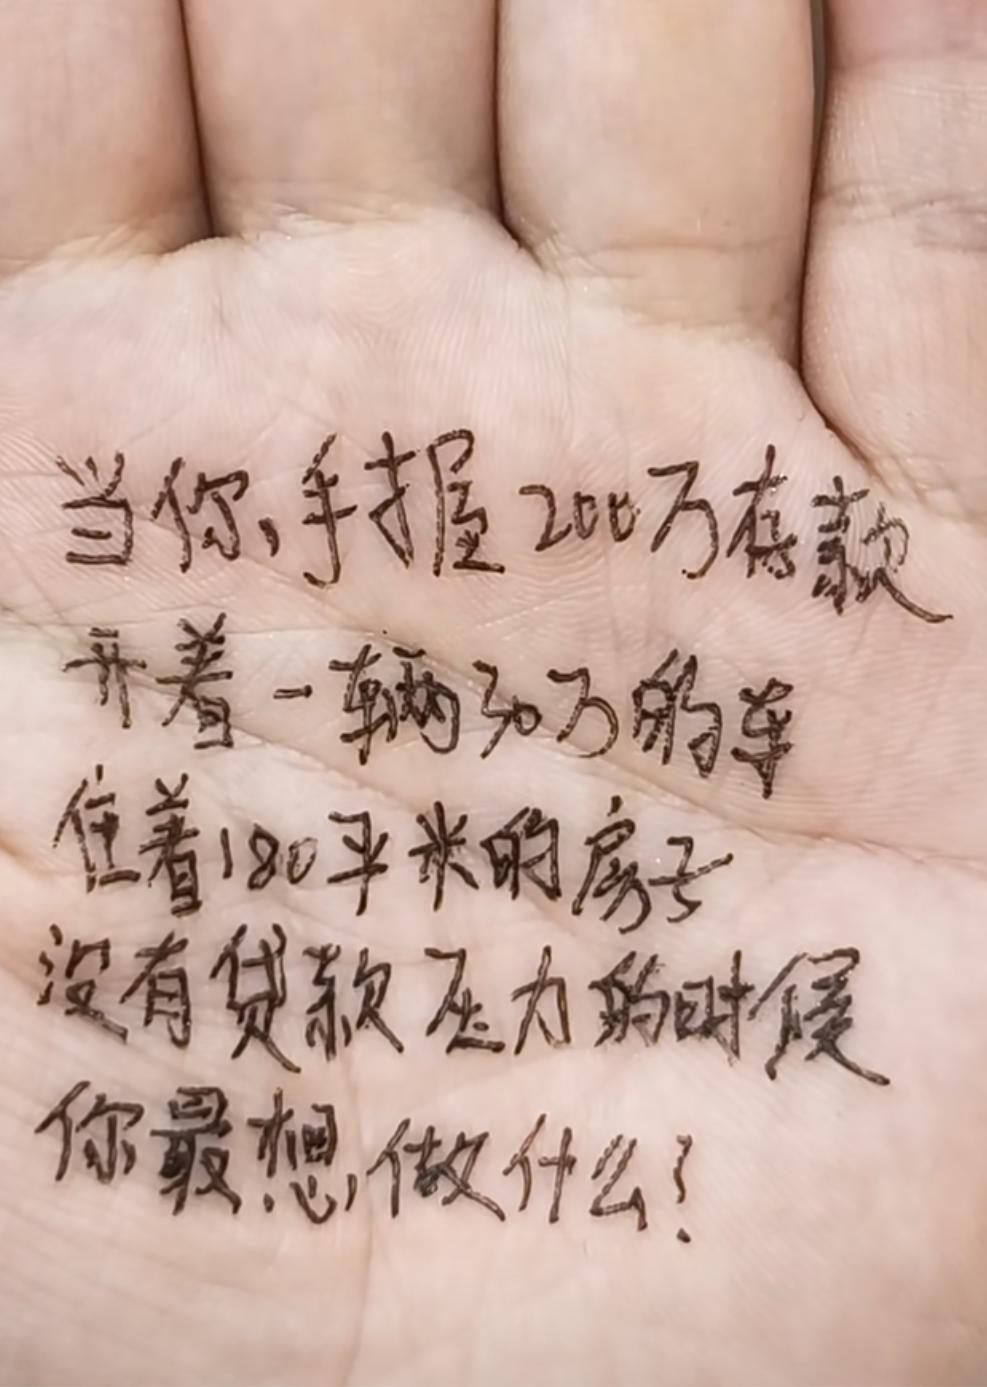 当你手握200万存款
开着一辆30万的车
住着180平米的房子
没有贷款压力的时候
你最想做什么?